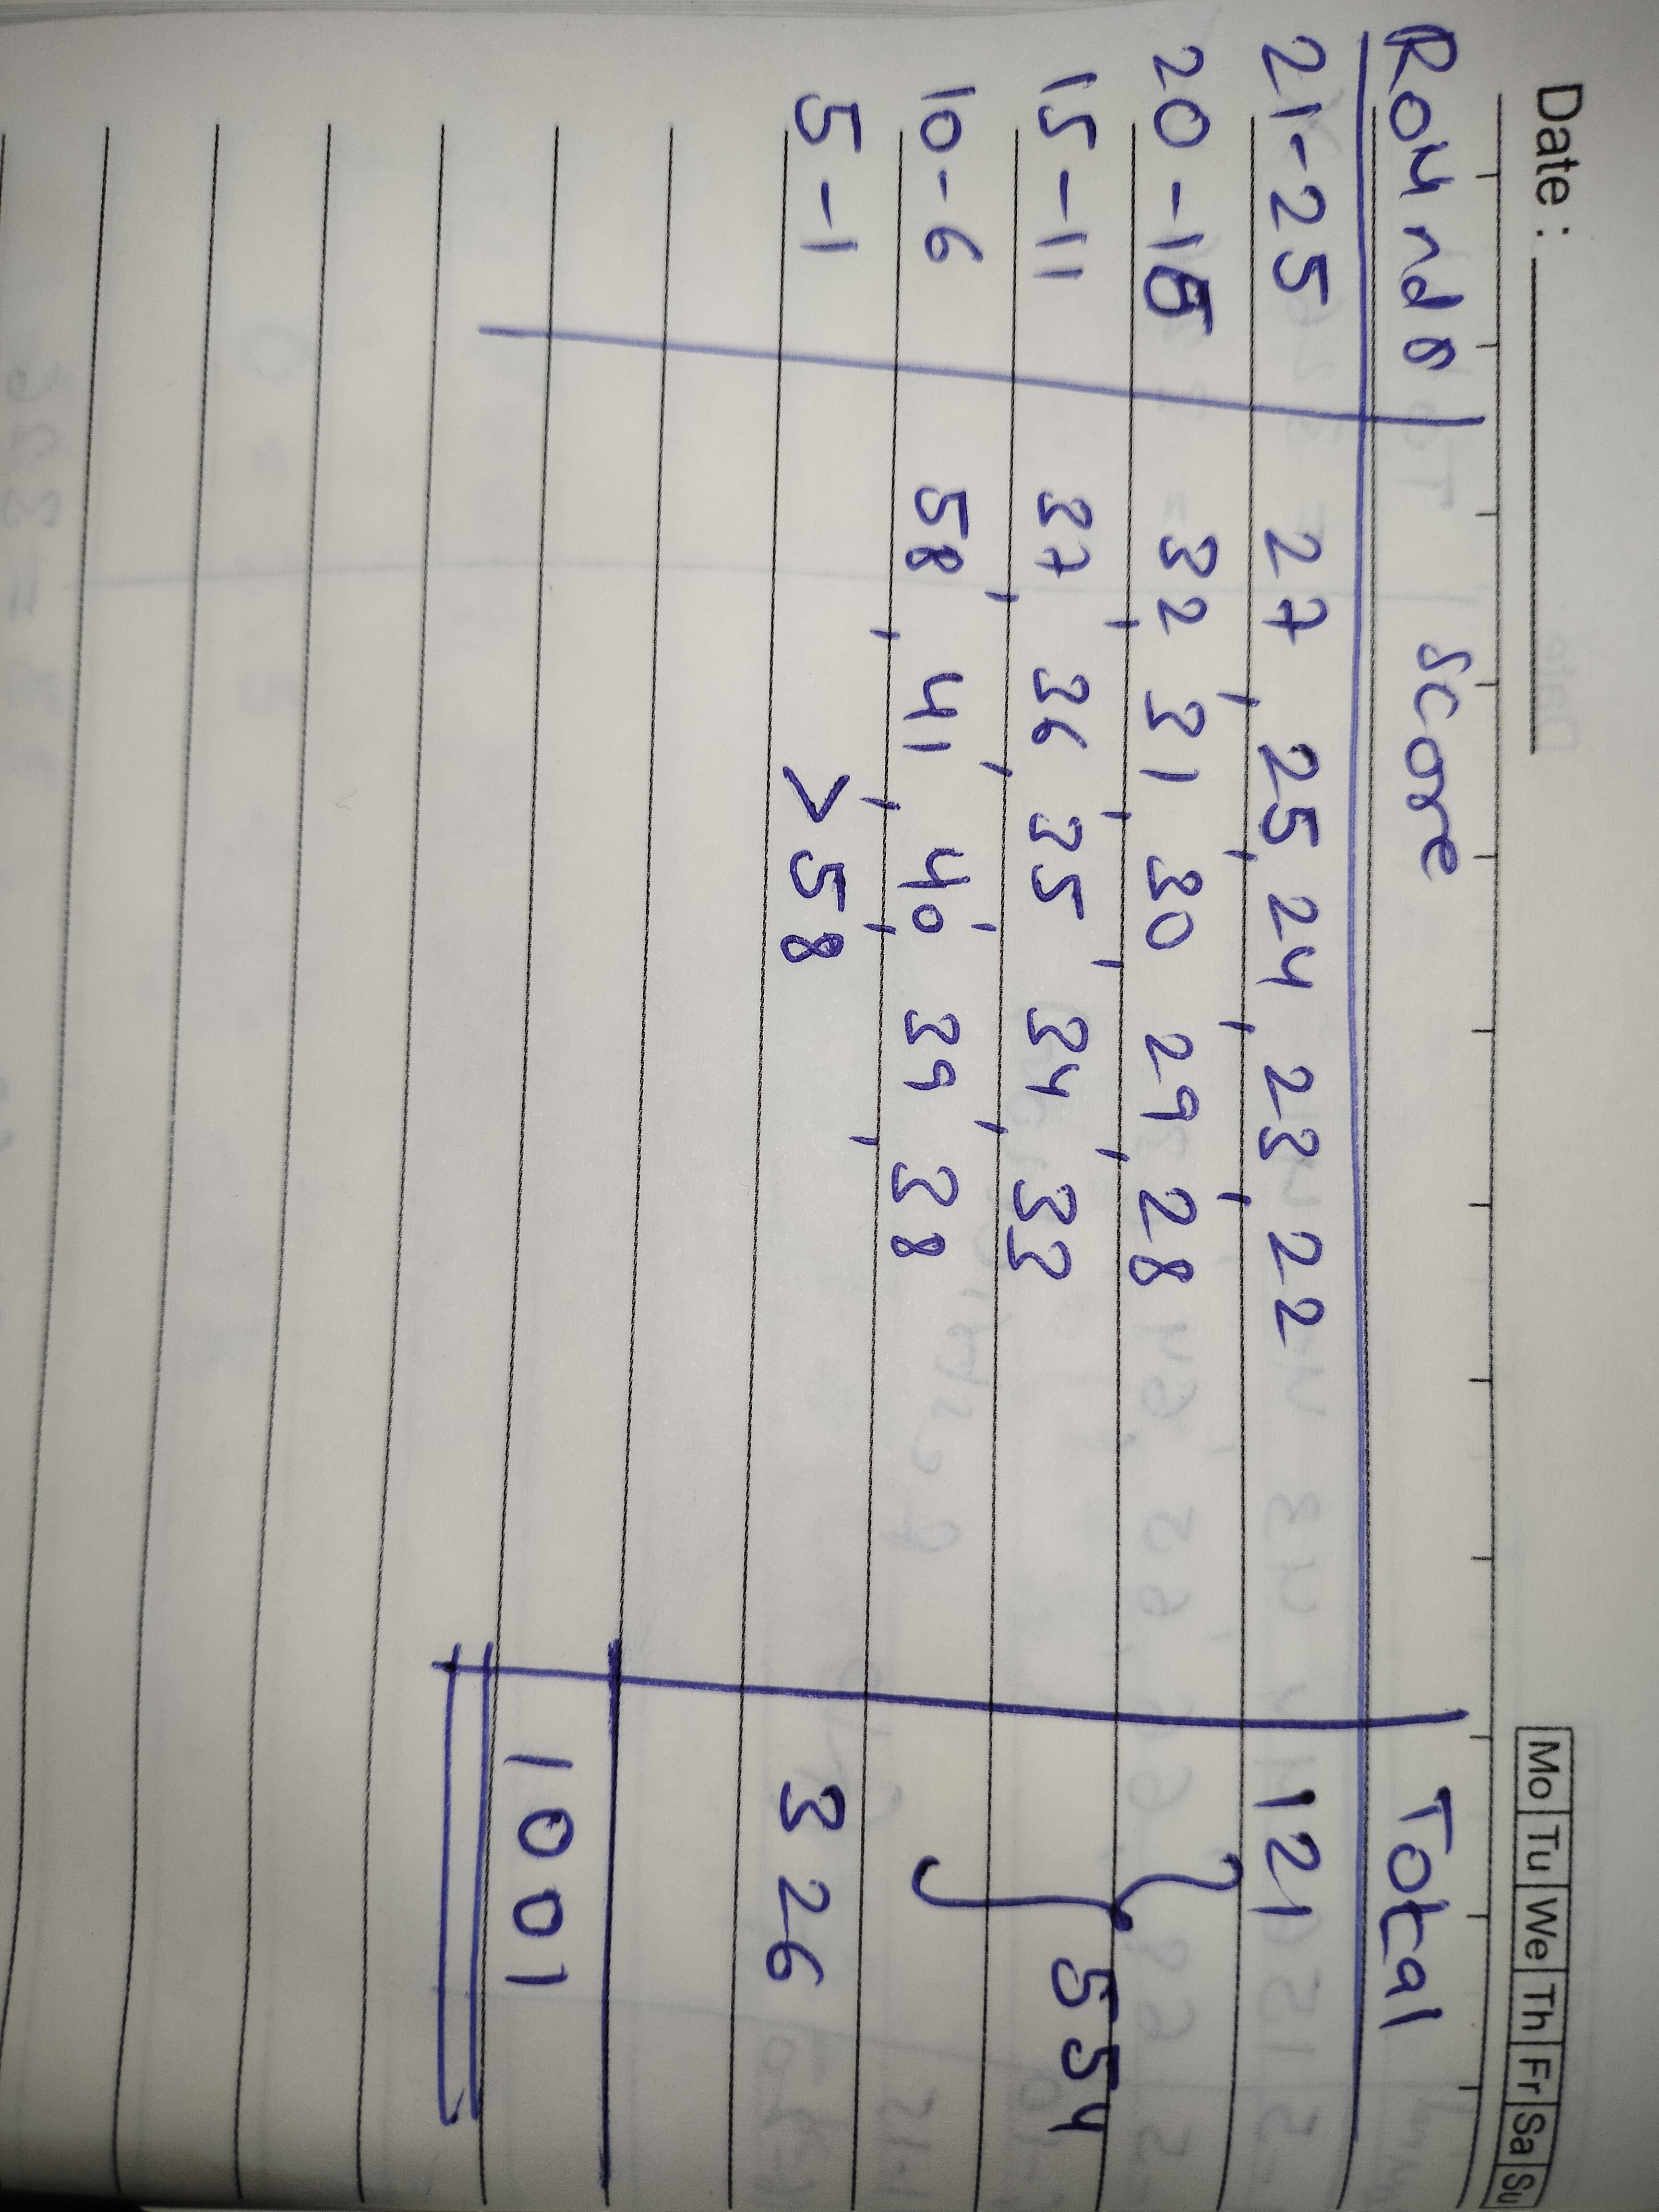 Date : Mo Tu We Th Fr Sa Su
Rounds score Total
21-25 27, 25, 24, 23, 22 121
20-16 32, 31, 30, 29, 28
15-11 37, 36, 35, 34, 33 554
10-6 58, 41, 40, 39, 38
5-1 >58 326
1001